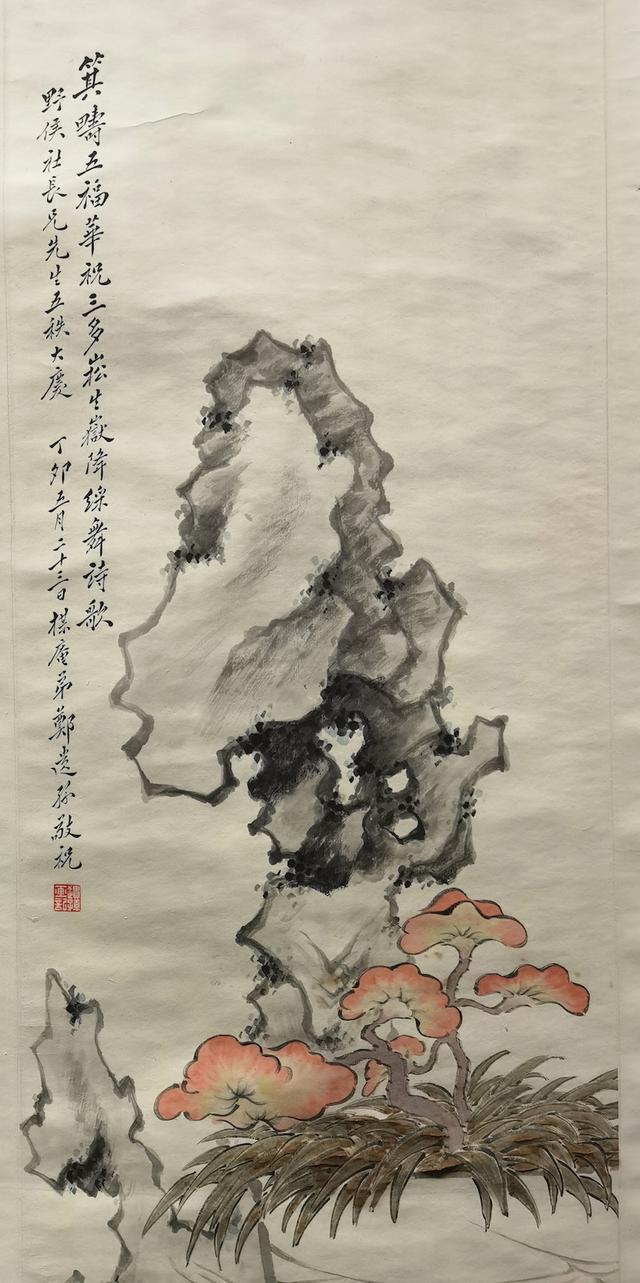 箕疇五福華祝三多崧生嶽降綵舞詩歌
野侯社長兄先生五秩大慶 丁卯五月二十三日樸庵弟鄭遺孫敬祝